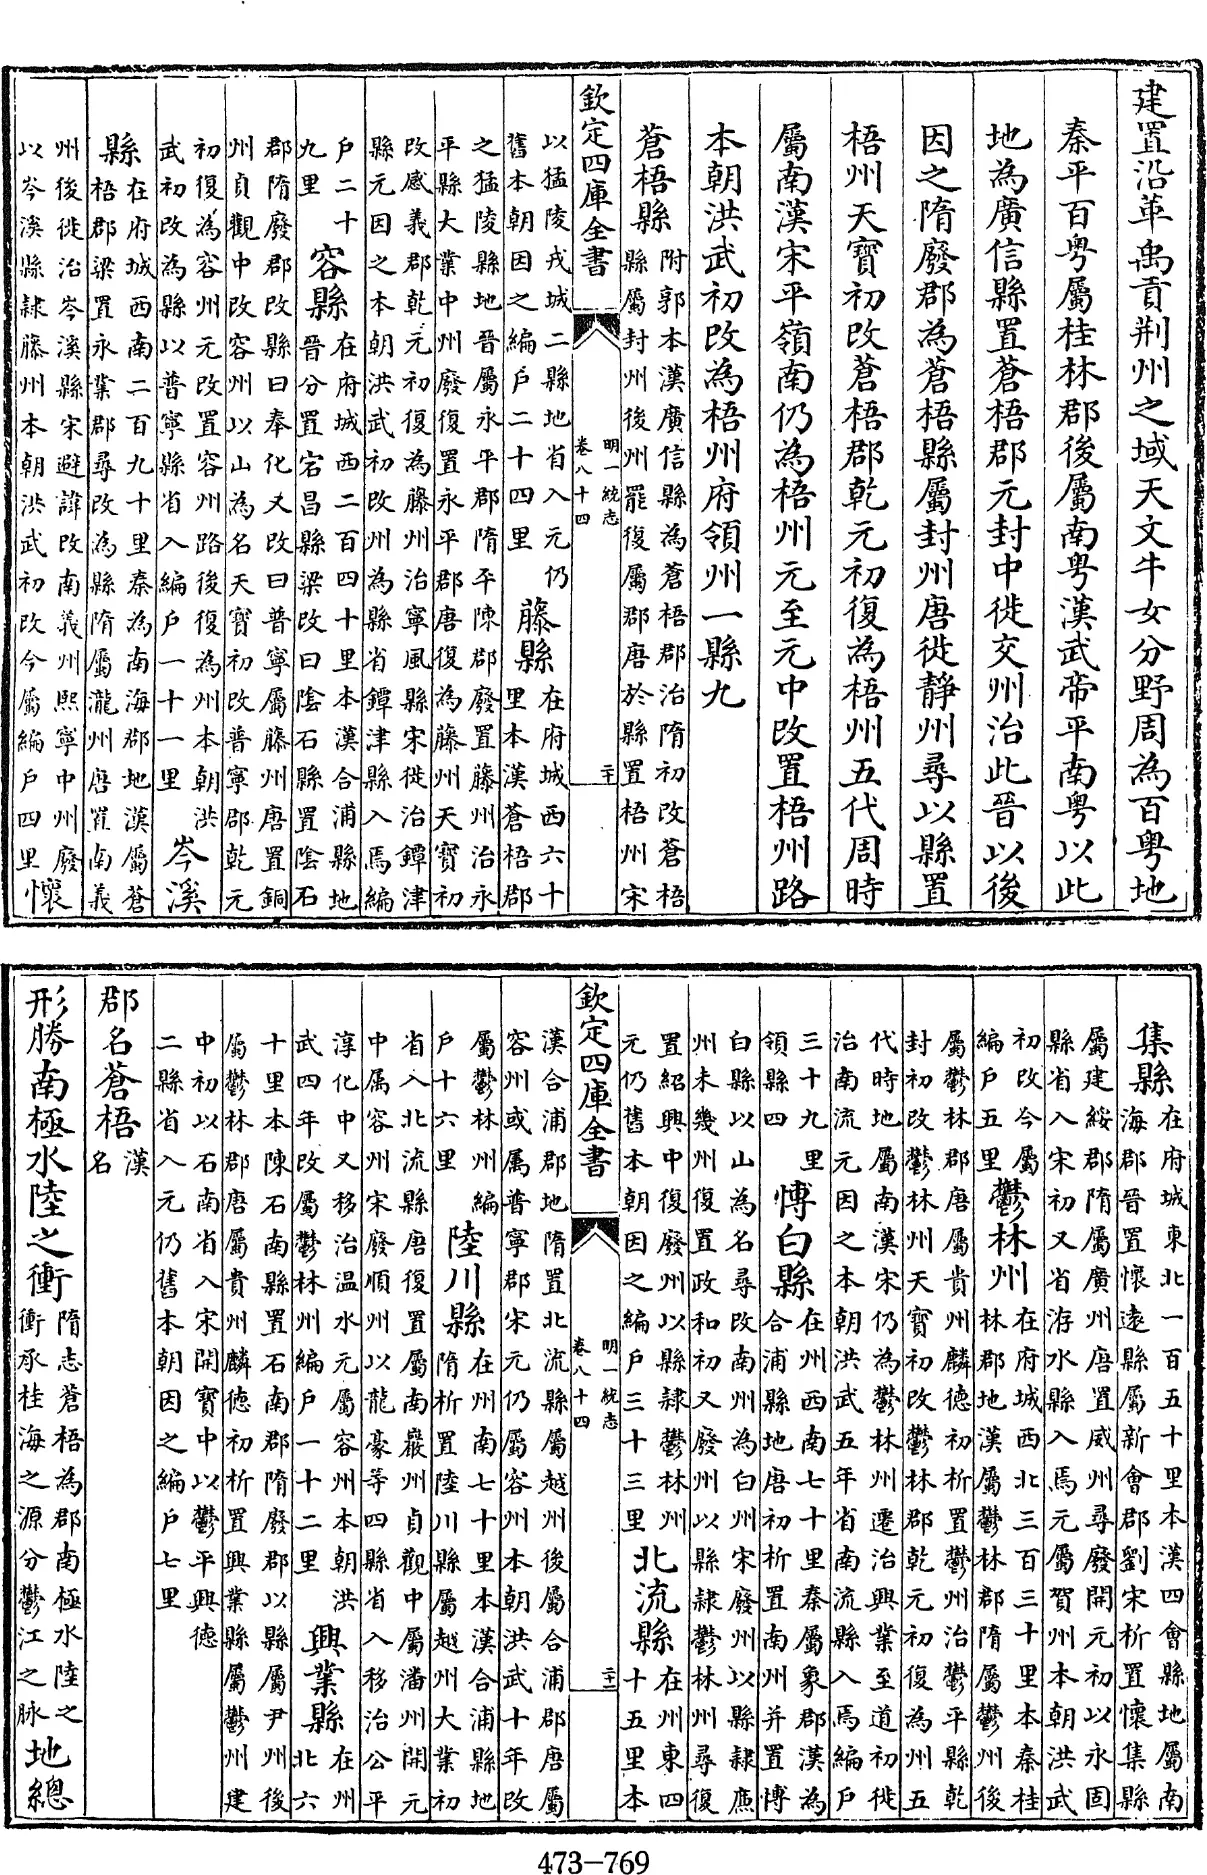 建置沿革禹貢荆州之域天文牛女分野周為百粤地
秦平百粤屬桂林郡後屬南粤漢武帝平南粤以此
地為廣信縣置蒼梧郡元封中徙交州治此晉以後
因之隋廢郡為蒼梧縣屬封州唐徙靜州尋以縣置
梧州天寶初改蒼梧郡乾元初復為梧州五代周時
屬南漢宋平嶺南仍為梧州元至元中改置梧州路
本朝洪武初改為梧州府領州一縣九
蒼梧縣
附郭本漢廣信縣為蒼梧郡治隋初改蒼梧
縣屬封州後州罷復屬郡唐於縣置梧州宋
欽定四庫全書
明一統志
卷八十四
二十
以猛陵戎城二縣地省入元仍
舊本朝因之編户二十四里
藤縣
在府城西六十
里本漢蒼梧郡
之猛陵縣地晉屬永平郡隋平陳郡廢置藤州治永
平縣大業中州廢復置永平郡唐復為藤州天寶初
改感義郡乾元初復為藤州治寧風縣宋徙治鐔津
縣元因之本朝洪武初改州為縣省鐔津縣入焉編
户二十
九里
容縣
在府城西二百四十里本漢合浦縣地
晉分置宕昌縣梁改曰陰石縣置陰石
郡隋廢郡改縣曰奉化又改曰普寧屬藤州唐置銅
州貞觀中改容州以山為名天寶初改普寧郡乾元
初復為容州元改置容州路後復為州本朝洪
武初改為縣以普寧縣省入編户一十一里
岑溪
縣
在府城西南二百九十里秦為南海郡地漢屬蒼
梧郡梁置永業郡尋改為縣隋屬瀧州唐置南義
州後徙治岑溪縣宋避諱改南義州熙寧中州廢
以岑溪縣隸藤州本朝洪武初改今屬編户四里
懷
集縣
在府城東北一百五十里本漢四會縣地屬南
海郡晉置懷遠縣屬新會郡劉宋析置懷集縣
屬建綏郡隋屬廣州唐置威州尋廢開元初以永固
縣省入宋初又省洊水縣入焉元屬賀州本朝洪武
初改今屬
編户五里
鬱林州
在府城西北三百三十里本秦桂
林郡地漢屬鬱林郡隋屬鬱州後
屬鬱林郡唐屬貴州麟德初析置鬱州治鬱平縣乾
封初改鬱林州天寶初改鬱林郡乾元初復為州五
代時地屬南漢宋仍為鬱林州遷治興業至道初徙
治南流元因之本朝洪武五年省南流縣入焉編户
三十九里
領縣四
博白縣
在州西南七十里秦屬象郡漢為
合浦縣地唐初析置南州并置博
白縣以山為名尋改南州為白州宋廢州以縣隸亷
州未幾州復置政和初又廢州以縣隸鬱林州尋復
置紹興中復廢州以縣隸鬱林州
元仍舊本朝因之編户三十三里
北流縣
在州東四
十五里本
欽定四庫全書
明一統志
卷八十四
二十一
漢合浦郡地隋置北流縣屬越州後屬合浦郡唐屬
容州或属普寧郡宋元仍屬容州本朝洪武十年改
屬鬱林州編
户十六里
陸川縣
在州南七十里本漢合浦縣地
隋析置陸川縣屬越州大業初
省入北流縣唐復置屬南巖州貞觀中屬潘州開元
中属容州宋廢順州以龍豪等四縣省入移治公平
淳化中又移治温水元屬容州本朝洪
武四年改屬鬱林州編户一十二里
興業縣
在州
北六
十里本陳石南縣置石南郡隋廢郡以縣屬尹州後
屬鬱林郡唐屬貴州麟德初析置興業縣屬鬱州建
中初以石南省入宋開寶中以鬱平興德
二縣省入元仍舊本朝因之編户七里
郡名蒼梧
漢
名
形勝南極水陸之衝
隋志蒼梧為郡南極水陸之
衝承桂海之源分鬱江之脉
地總
473-769